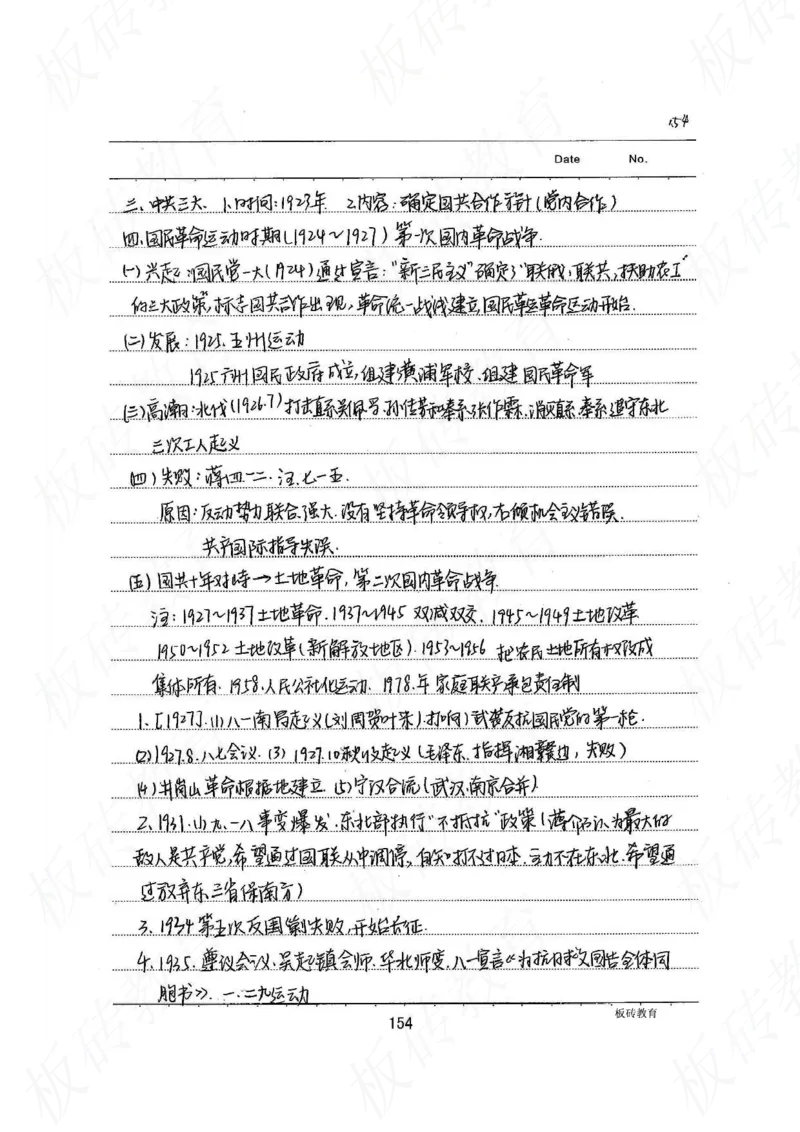 154
Date No.
三、中共三大、1.时间:1923年 2.内容:确定国共合作方针(党内合作)
四.国民革命运动时期(1924~1927)第一次国内革命战争.
(一)兴起:国民党一大(1924)通过宣言:"新三民主义"确定了"联俄,联共,扶助农工"
的三大政策,标志国共合作出现,革命统一战线建立,国民革命运动开始.
(二)发展:1925.五卅运动
1925广州国民政府成立,组建黄浦军校.组建国民革命军
(三)高潮:北伐(1926.7)打击直系吴佩孚.孙传芳和奉系张作霖.消灭直系.奉系退守东北
三次工人起义
(四)失败:蒋.四一二.汪.七一五.
原因:反动势力联合.强大.没有坚持革命领导权,右倾机会主义错误.
共产国际指导失误.
(五)国共十年对峙→土地革命,第二次国内革命战争
注:1927~1937土地革命.1937~1945 双减双交. 1945~1949土地改革
1950~1952 土地改革(新解放地区).1953~1956 把农民土地所有权改成
集体所有.1958.人民公社化运动. 1978.年家庭联产承包责任制
1.[1927].(1)八一南昌起义(刘周贺叶朱).打响)武装反抗国民党的第一枪.
(2)1927.8.八七会议.(3) 1927.10秋收起义(毛泽东.指挥湘赣边,失败)
(4)井岗山革命根据地建立 (5)宁汉合流(武汉.南京合并)
2.1931.(1)九.一八事变爆发.东北部执行"不抵抗"政策(蒋介石认为最大的
敌人是共产党,希望通过国联从中调停,自知打不过日本.主力不在东北.希望通
过放弃东三省保南方)
3.1934第五次反围剿失败,开始长征.
4.1935.遵议会议.吴起镇会师.华北师变.八一宣言《为抗日救国告全体同
胞书》.一.二九运动
154
板砖教育
板砖教育